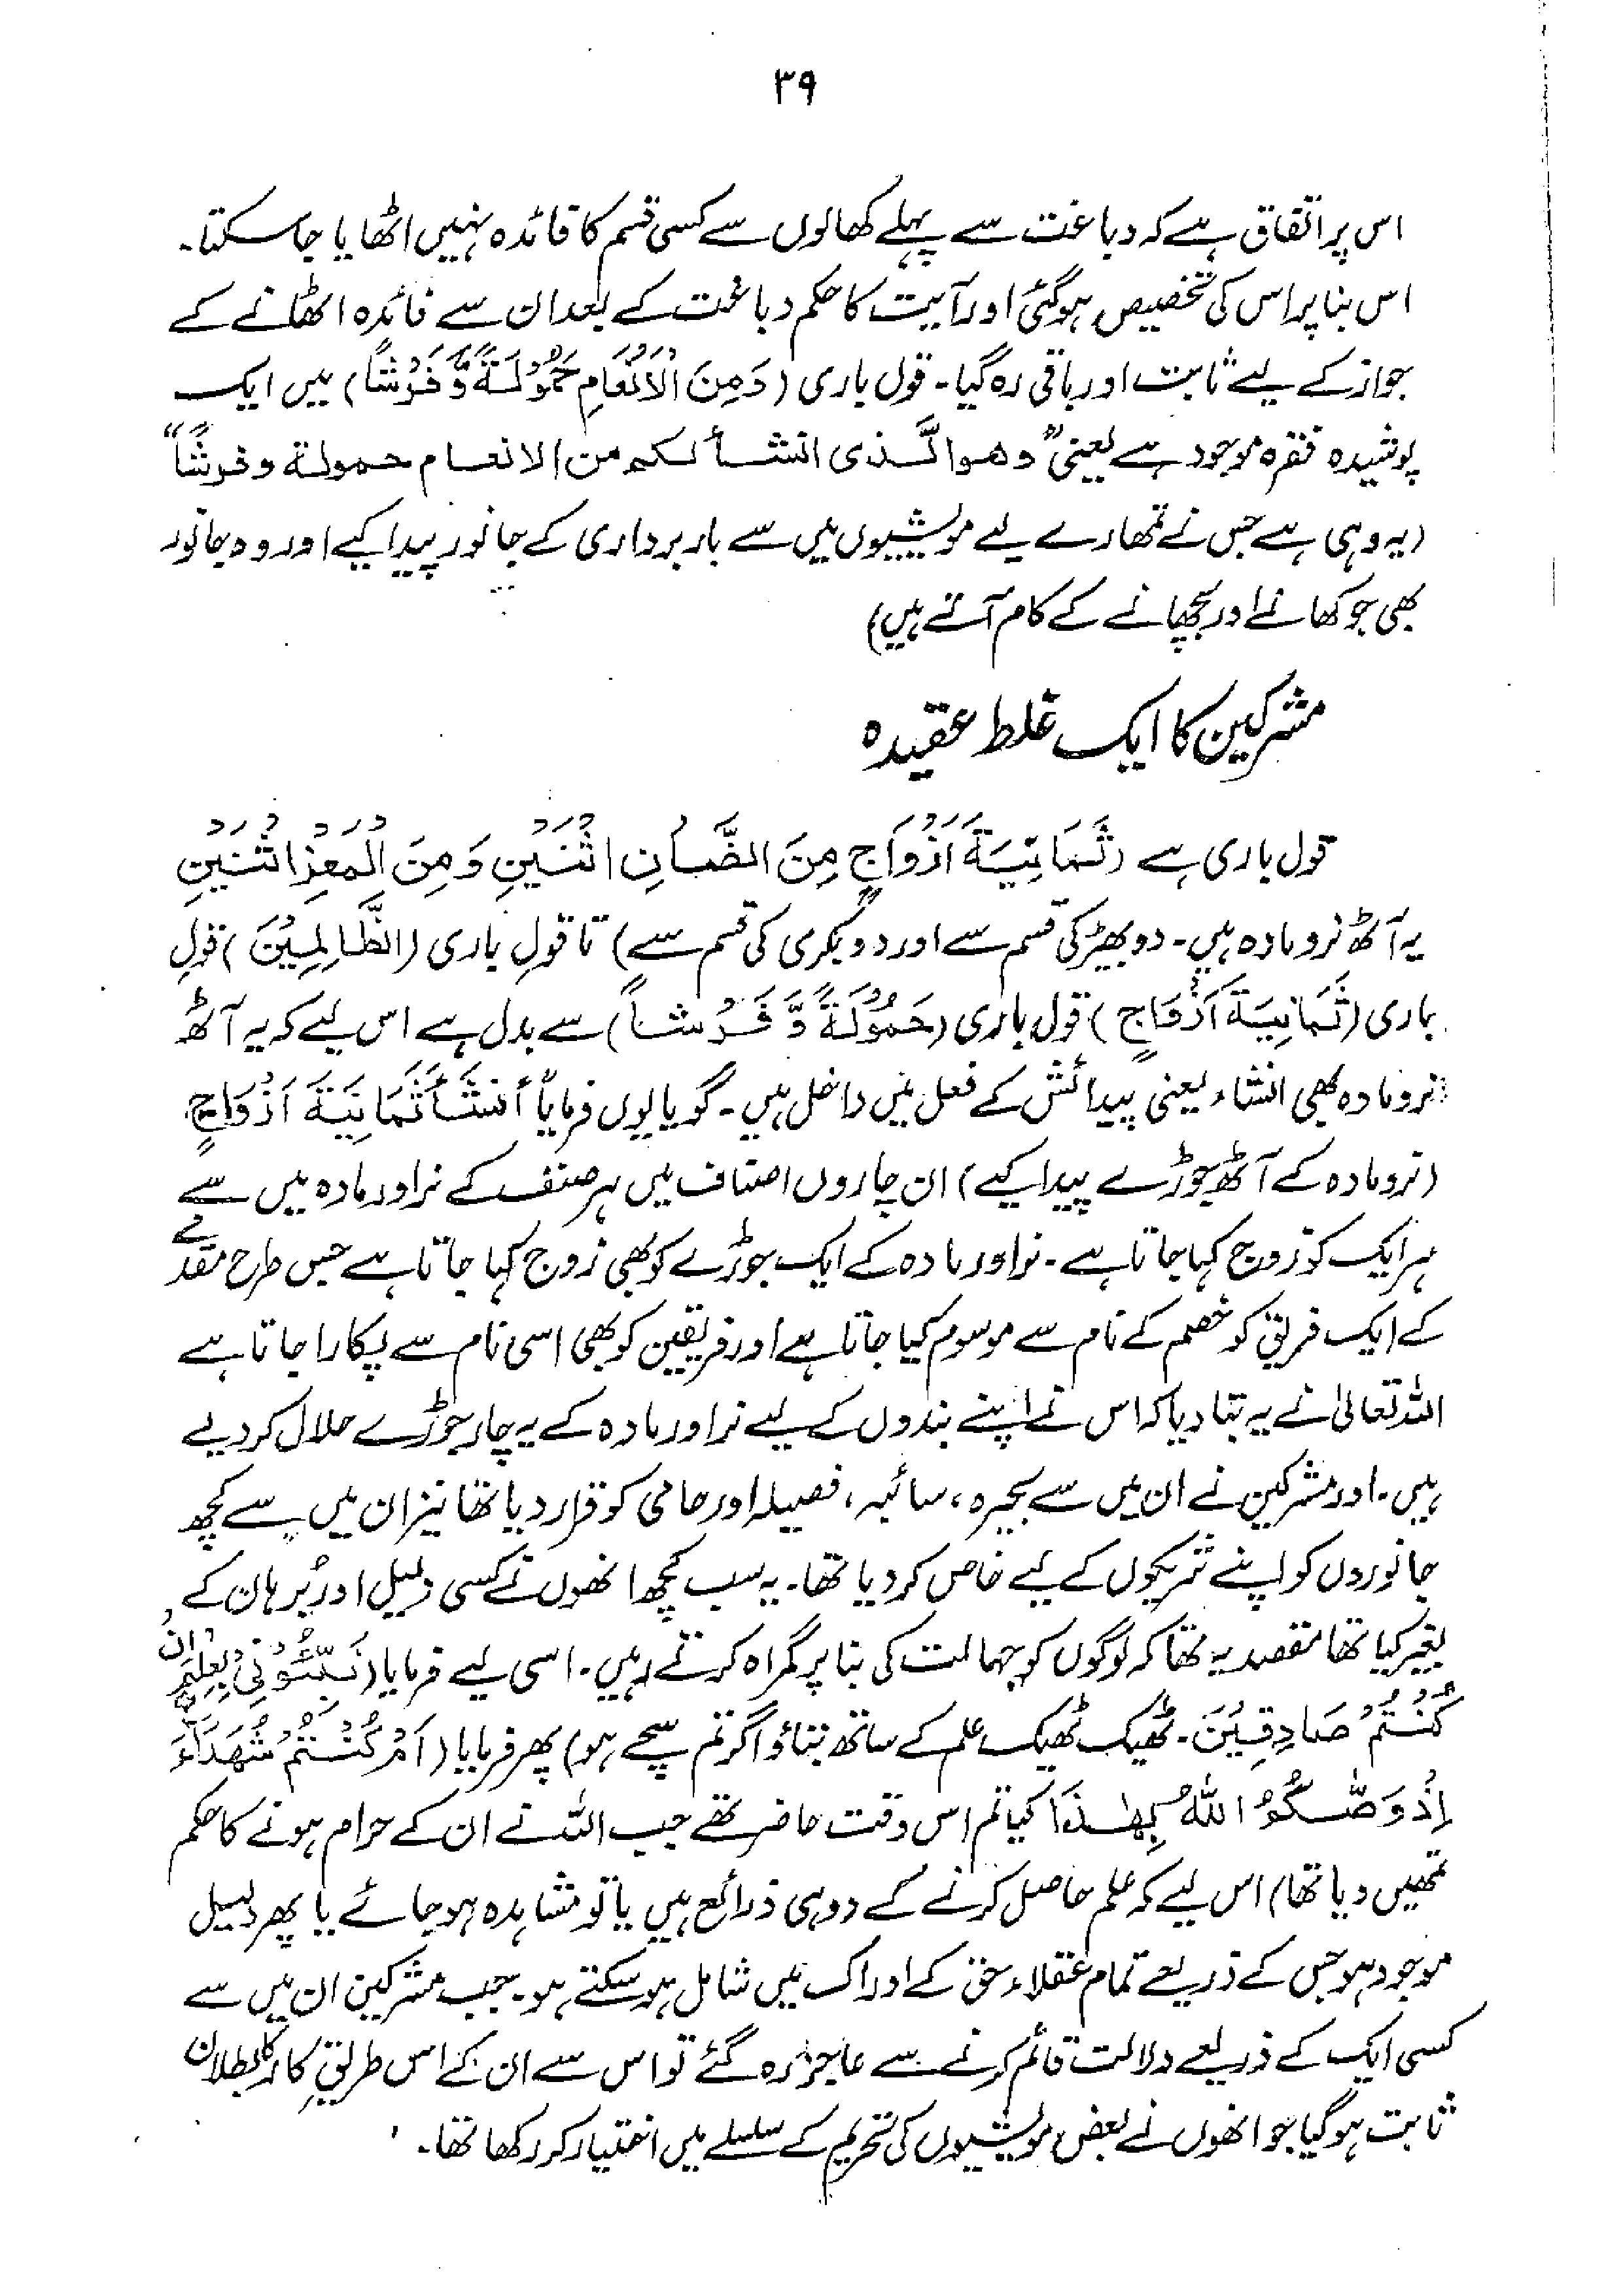 ۳۹
اس پر اتفاق ہے کہ دباغت سے پہلے کھالوں سے کسی قسم کا فائدہ نہیں اٹھایا جا سکتا۔
اس بنا پر اس کی تخصیص ہوگئی اور آیت کا حکم دباغت کے بعد ان سے فائدہ اٹھانے کے
جواز کے لیے ثابت اور باقی رہ گیا۔ قول باری (وَمِنَ الْاَنْعَامِ حَمُوْلَةً وَّفَرْشًا) میں ایک
پوشیدہ فقرہ موجود ہے یعنی "وھوالّذی انشأ لکم من الانعام حمولة وفرشًا"
(یہ وہی ہے جس نے تمھارے لیے مویشیوں میں سے باربرداری کے جانور پیدا کیے اور وہ جانور
بھی جو کھانے اور بچھانے کے کام آتے ہیں)
مشرکین کا ایک غلط عقیدہ
قول باری ہے (ثَمَانِيَةَ اَزْوَاجٍ مِنَ الضَّأْنِ اثْنَيْنِ وَمِنَ الْمَعْزِ اثْنَيْنِ
یہ آٹھ نر و مادہ ہیں۔ دو بھیڑ کی قسم سے اور دو بکری کی قسم سے) تا قولِ باری (الظَّالِمِيْنَ) قولِ
باری (ثَمَانِيَةَ اَزْوَاجٍ) قول باری (حَمُوْلَةً وَّفَرْشًا) سے بدل ہے اس لیے کہ یہ آٹھ
نر و مادہ بھی انشاء یعنی پیدائش کے فعل میں داخل ہیں۔ گویا یوں فرمایا "أَنْشَأَ ثَمَانِيَةَ اَزْوَاجٍ"
(نر و مادہ کے آٹھ جوڑے پیدا کیے) ان چاروں اصناف میں ہر صنف کے نر اور مادہ میں سے
ہر ایک کو زوج کہا جاتا ہے۔ نر اور مادہ کے ایک جوڑے کو بھی زوج کہا جاتا ہے جس طرح مقدمے
کے ایک فریق کو خصم کے نام سے موسوم کیا جاتا ہے اور فریقین کو بھی اسی نام سے پکارا جاتا ہے
اللہ تعالیٰ نے یہ بتا دیا کہ اس نے اپنے بندوں کے لیے نر اور مادہ کے یہ چار جوڑے حلال کر دیے
ہیں۔ اور مشرکین نے ان میں سے بحیرہ، سائبہ، فصیلہ اور حامی کو قرار دیا تھا نیز ان میں سے کچھ
جانوروں کو اپنے شریکوں کے لیے خاص کر دیا تھا۔ یہ سب کچھ انھوں نے کسی دلیل اور بُرہان کے
بغیر کیا تھا مقصد یہ تھا کہ لوگوں کو جہالت کی بنا پر گمراہ کرتے رہیں۔ اسی لیے فرمایا (نَبِّئُوْنِيْ بِعِلْمٍ اِنْ
كُنْتُمْ صَادِقِيْنَ۔ ٹھیک ٹھیک علم کے ساتھ بتاؤ اگر تم سچے ہو) پھر فرمایا (اَمْ كُنْتُمْ شُهَدَاءَ
اِذْ وَصّٰكُمُ اللّٰهُ بِهٰذَا کیا تم اس وقت حاضر تھے جب اللہ نے ان کے حرام ہونے کا حکم
تمھیں دیا تھا) اس لیے کہ علم حاصل کرنے کے دو ہی ذرائع ہیں یا تو مشاہدہ ہو جائے یا پھر دلیل
موجود ہو جس کے ذریعے تمام عقلاء حق کے ادراک میں شامل ہو سکتے ہو۔ جب مشرکین ان میں سے
کسی ایک کے ذریعے دلالت قائم کرنے سے عاجز رہ گئے تو اس سے ان کے اس طریقِ کار کا بطلان
ثابت ہو گیا جو انھوں نے بعض مویشیوں کی تحریم کے سلسلے میں اختیار کر رکھا تھا۔